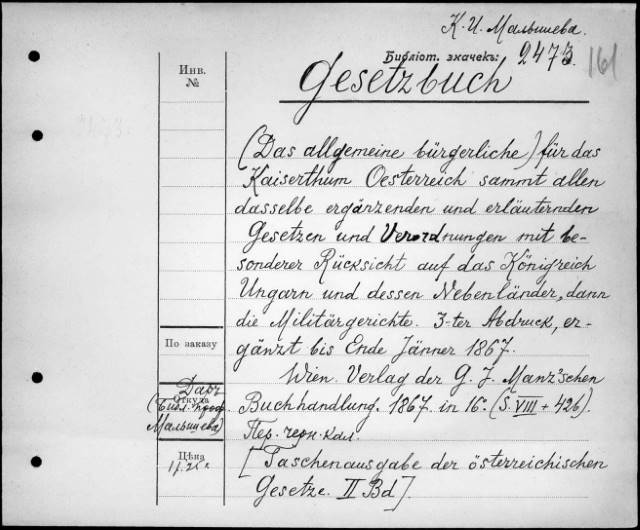 К. И. Малышева.
Библіот. значекъ: 2473. 161
Инв.
№
Gesetzbuch
(Das allgemeine bürgerliche) für das
Kaiserthum Oesterreich sammt allen
dasselbe ergänzenden und erläuternden
Gesetzen und Verordnungen mit be-
sonderer Rücksicht auf das Königreich
Ungarn und dessen Nebenländer, dann
die Militärgerichte. 3-ter Abdruck, er-
gänzt bis Ende Jänner 1867.
Wien. Verlag der G. J. Manz'schen
Buchhandlung. 1867. in 16. (S. VIII + 426).
Пер. черн. кол.
[Taschenausgabe der österreichischen
Gesetze. II Bd].
По заказу
Даръ
Откуда
(Библ. проф.
Малышева)
Цѣна